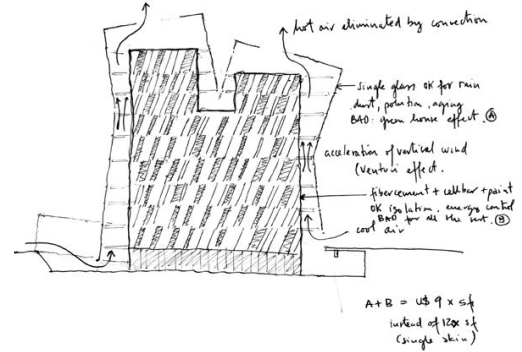 hot air eliminated by convection
single glass OK for rain
dust, polution, aging
BAD: green house effect. A
acceleration of vertical wind
(venturi effect.
fibercement + cellbar + paint
OK isolation, energy control
BAD for all the rest. B
cool air
A+B = U$ 9 x sf
instead of 12x sf
(single skin)